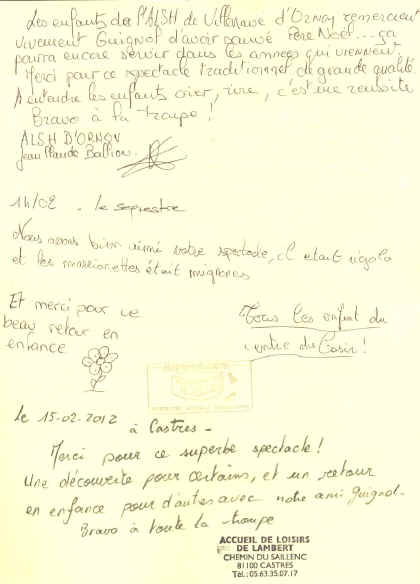 Les enfants de l'ALSH de Villeneuve d'Ornoy remercient
vivement Guignol d'avoir sauvé Père Noël... ça
pourra encore servir dans les années qui viennent!
Merci pour ce spectacle traditionnel de grande qualité
A entendre les enfants crier, rire, c'est une réussite
Bravo à la troupe!
ALSH D'ORNOY
Jean Claude
14/02 - le sequestre
Nous avons bien aimé votre spectacle, il etait rigolo
et les marionettes était mignones
Et merci pour ce
beau retour en
enfance
Tous les enfant du
centre du !
Le 15-02-2012
à Castres -
Merci pour ce superbe spectacle!
Une découverte pour certains, et un retour
en enfance pour d'autes avec notre ami guignol.
Bravo à toute la troupe
ACCUEIL DE LOISIRS
DE LAMBERT
CHEMIN DU SAILLENC
81100 CASTRES
Tél.: 05.63.35.07.17